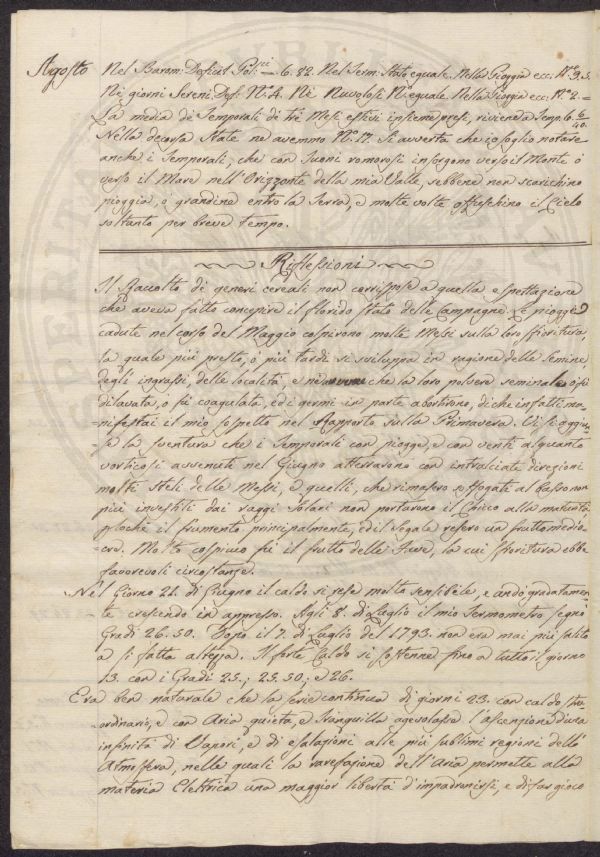 Agosto Nel Barom: Deficit Pol:ci — 6. 82. Nel Term: Stato eguale. Nella Pioggia ecc: N.o 3. 5.
Nei giorni Sereni Def: N.o 4. Nei Nuvolosi N.o eguale. Nella Pioggia ecc: N.o 2. =
La media di Temporali di tre Mesi estivi insieme presi, riviene a Temp: 6. 6/40.
Nella decorsa State ne avemmo N.o 17. Si avverta che io soglio notare
anche i Temporali, che con Tuoni romorosi insorgono verso il Monte o
verso il Mare nell'Orizzonte della mia Valle, sebbene non scarichino
pioggia, o grandine entro la Terra, e molte volte offuschino il Cielo
soltanto per breve tempo.
Riflessioni
Il Raccolto di generi cereali non corrispose a quella espettazione
che aveva fatto concepire il florido stato delle Campagne. Le piogge
cadute nel corso del Maggio colpirono molte Messi sulla loro sfioritura,
la quale più presto, o più tardi si sviluppa in ragione delle Semine,
degli ingrassi, delle località, e ne avvenne che la loro polvere seminale o fù
dilavata, o fù coagulata, ed i germi in parte abortirono, di che infatti ma-
=nifestai il mio sospetto nel Rapporto sulla Primavera. Vi si aggiun-
=se la sventura che i Temporali con piogge, e con venti alquanto
vorticosi avvenuti nel Giugno atterrarono con intralciate direzioni
molti Steli delle Messi, e quelli, che rimasero affogati al basso non
più investiti dai raggi Solari non portarono il Chicco alla maturità,
=plochè il frumento principalmente, ed il Segale resero un frutto medio-
=cre. Molto cospicuo fù il frutto delle Fave, la cui sfioritura ebbe
favorevoli circostanze.
Nel Giorno 21. di Giugno il caldo si rese molto sensibile, e andò gradatamen-
te crescendo in appresso. Agli 8. di Luglio il mio Termometro segnò
Gradi 26. 50. Dopo il 7. di Luglio del 1793. non era mai più salito
a sì fatta altezza. Il forte Caldo si sostenne fino a tutto il giorno
13. con i Gradi 25.; 25. 50; e 26.
Era ben naturale che la serie continua di giorni 23. con caldo stra-
=ordinario, e con Aria quieta, e tranquilla agevolasse l'ascenzione d'una
infinità di Vapori, e di esalazioni alle più sublimi regioni dell'
Atmosfera, nelle quali la rarefazione dell'Aria permette alla
materia Elettrica una maggior libertà d'impadronirsi, e di far gioco